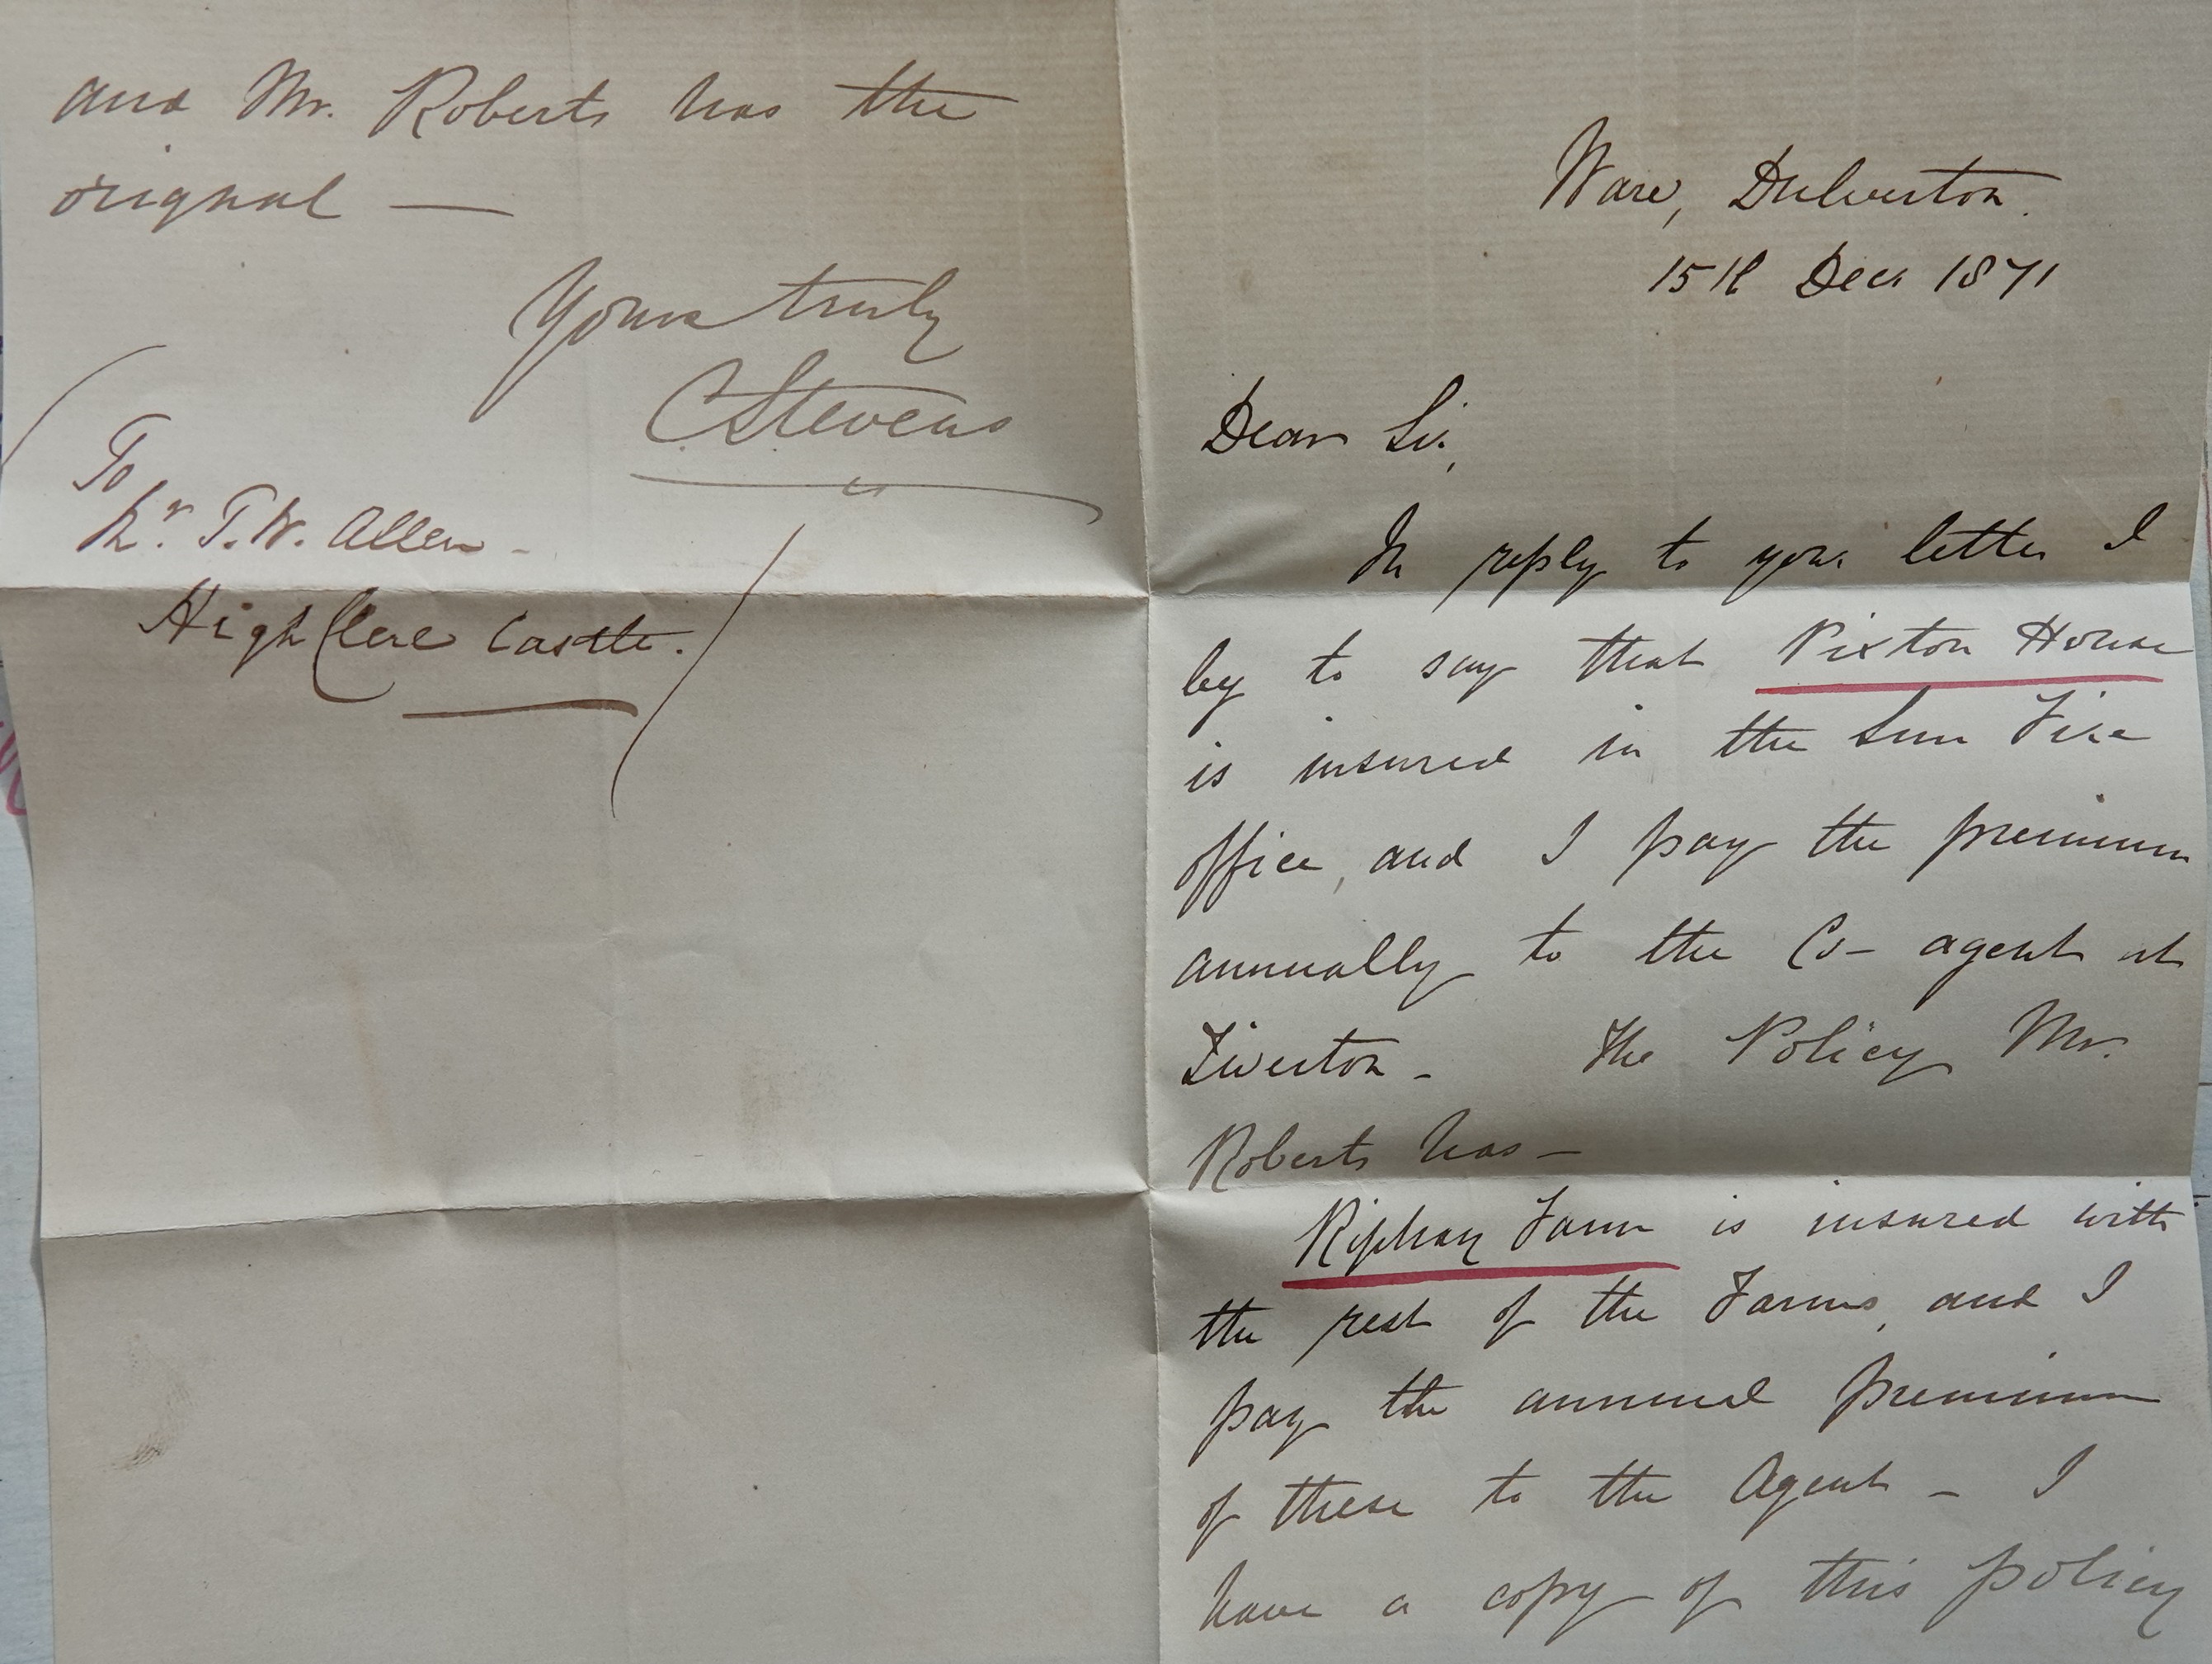 Ware, Dulverton.
15th Decr 1871
Dear Sir,
In reply to your letter I
beg to say that Pixton House
is insured in the Sun Fire
office, and I pay the premium
annually to the Co- agent at
Tiverton - The Policy Mr.
Roberts has -
Riphay Farm is insured with
the rest of the Farms, and I
pay the annual premium
of these to the Agent - I
have a copy of this policy
and Mr. Roberts has the
original —
Yours truly
CStevens
To
Mr. T.W. Allen -
HighClere Castle.